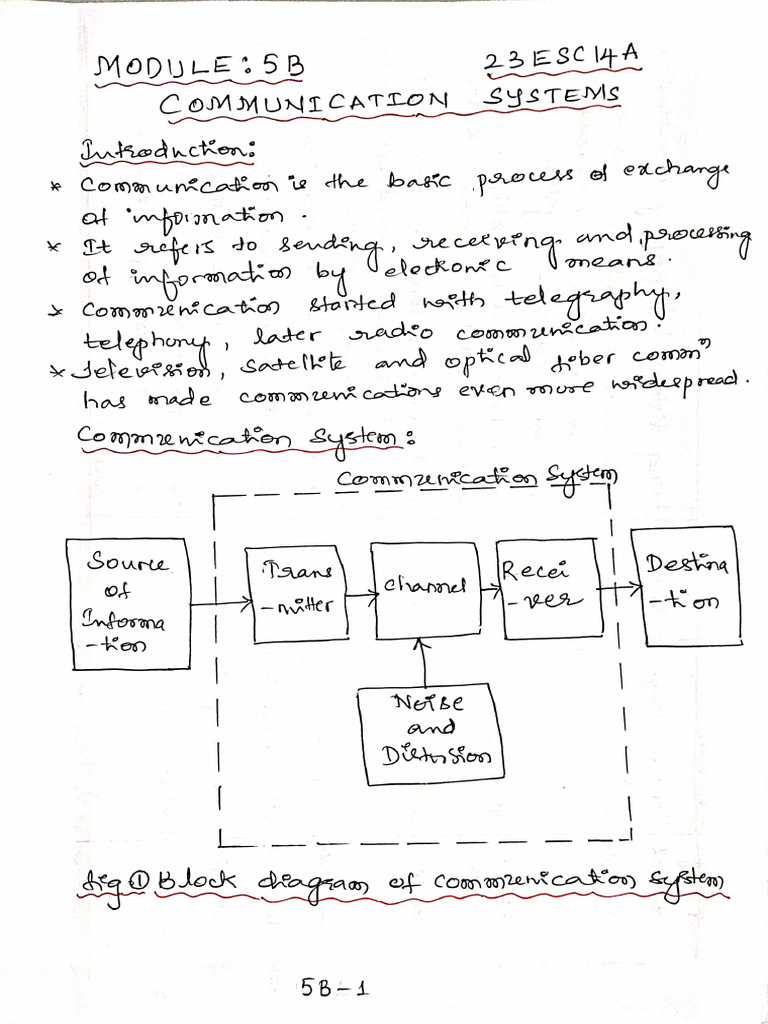 MODULE: 5B 23ESC14A
COMMUNICATION SYSTEMS
Introduction:
* Communication is the basic process of exchange
of information.
* It refers to sending, receiving and processing
of information by electronic means.
* Communication started with telegraphy,
telephony, later radio communication.
* Television, satellite and optical fiber commⁿ
has made communications even more widespread.
Communication System:
Communication System
Source
of
Informa
-tion
Trans
-mitter
Channel
Recei
-ver
Destina
-tion
Noise
and
Distortion
fig ① Block diagram of communication system
5B-1